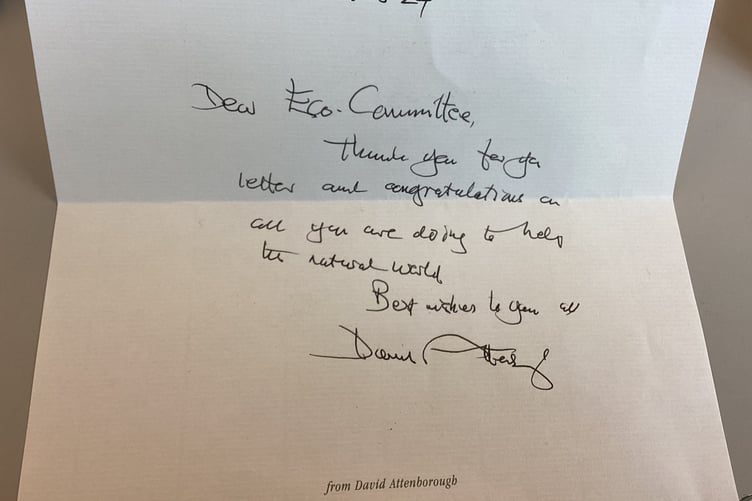 Dear Eco-Committee,
Thank you for yr
letter and congratulations on
all you are doing to help
the natural world
Best wishes to you all
David Attenborough
from David Attenborough